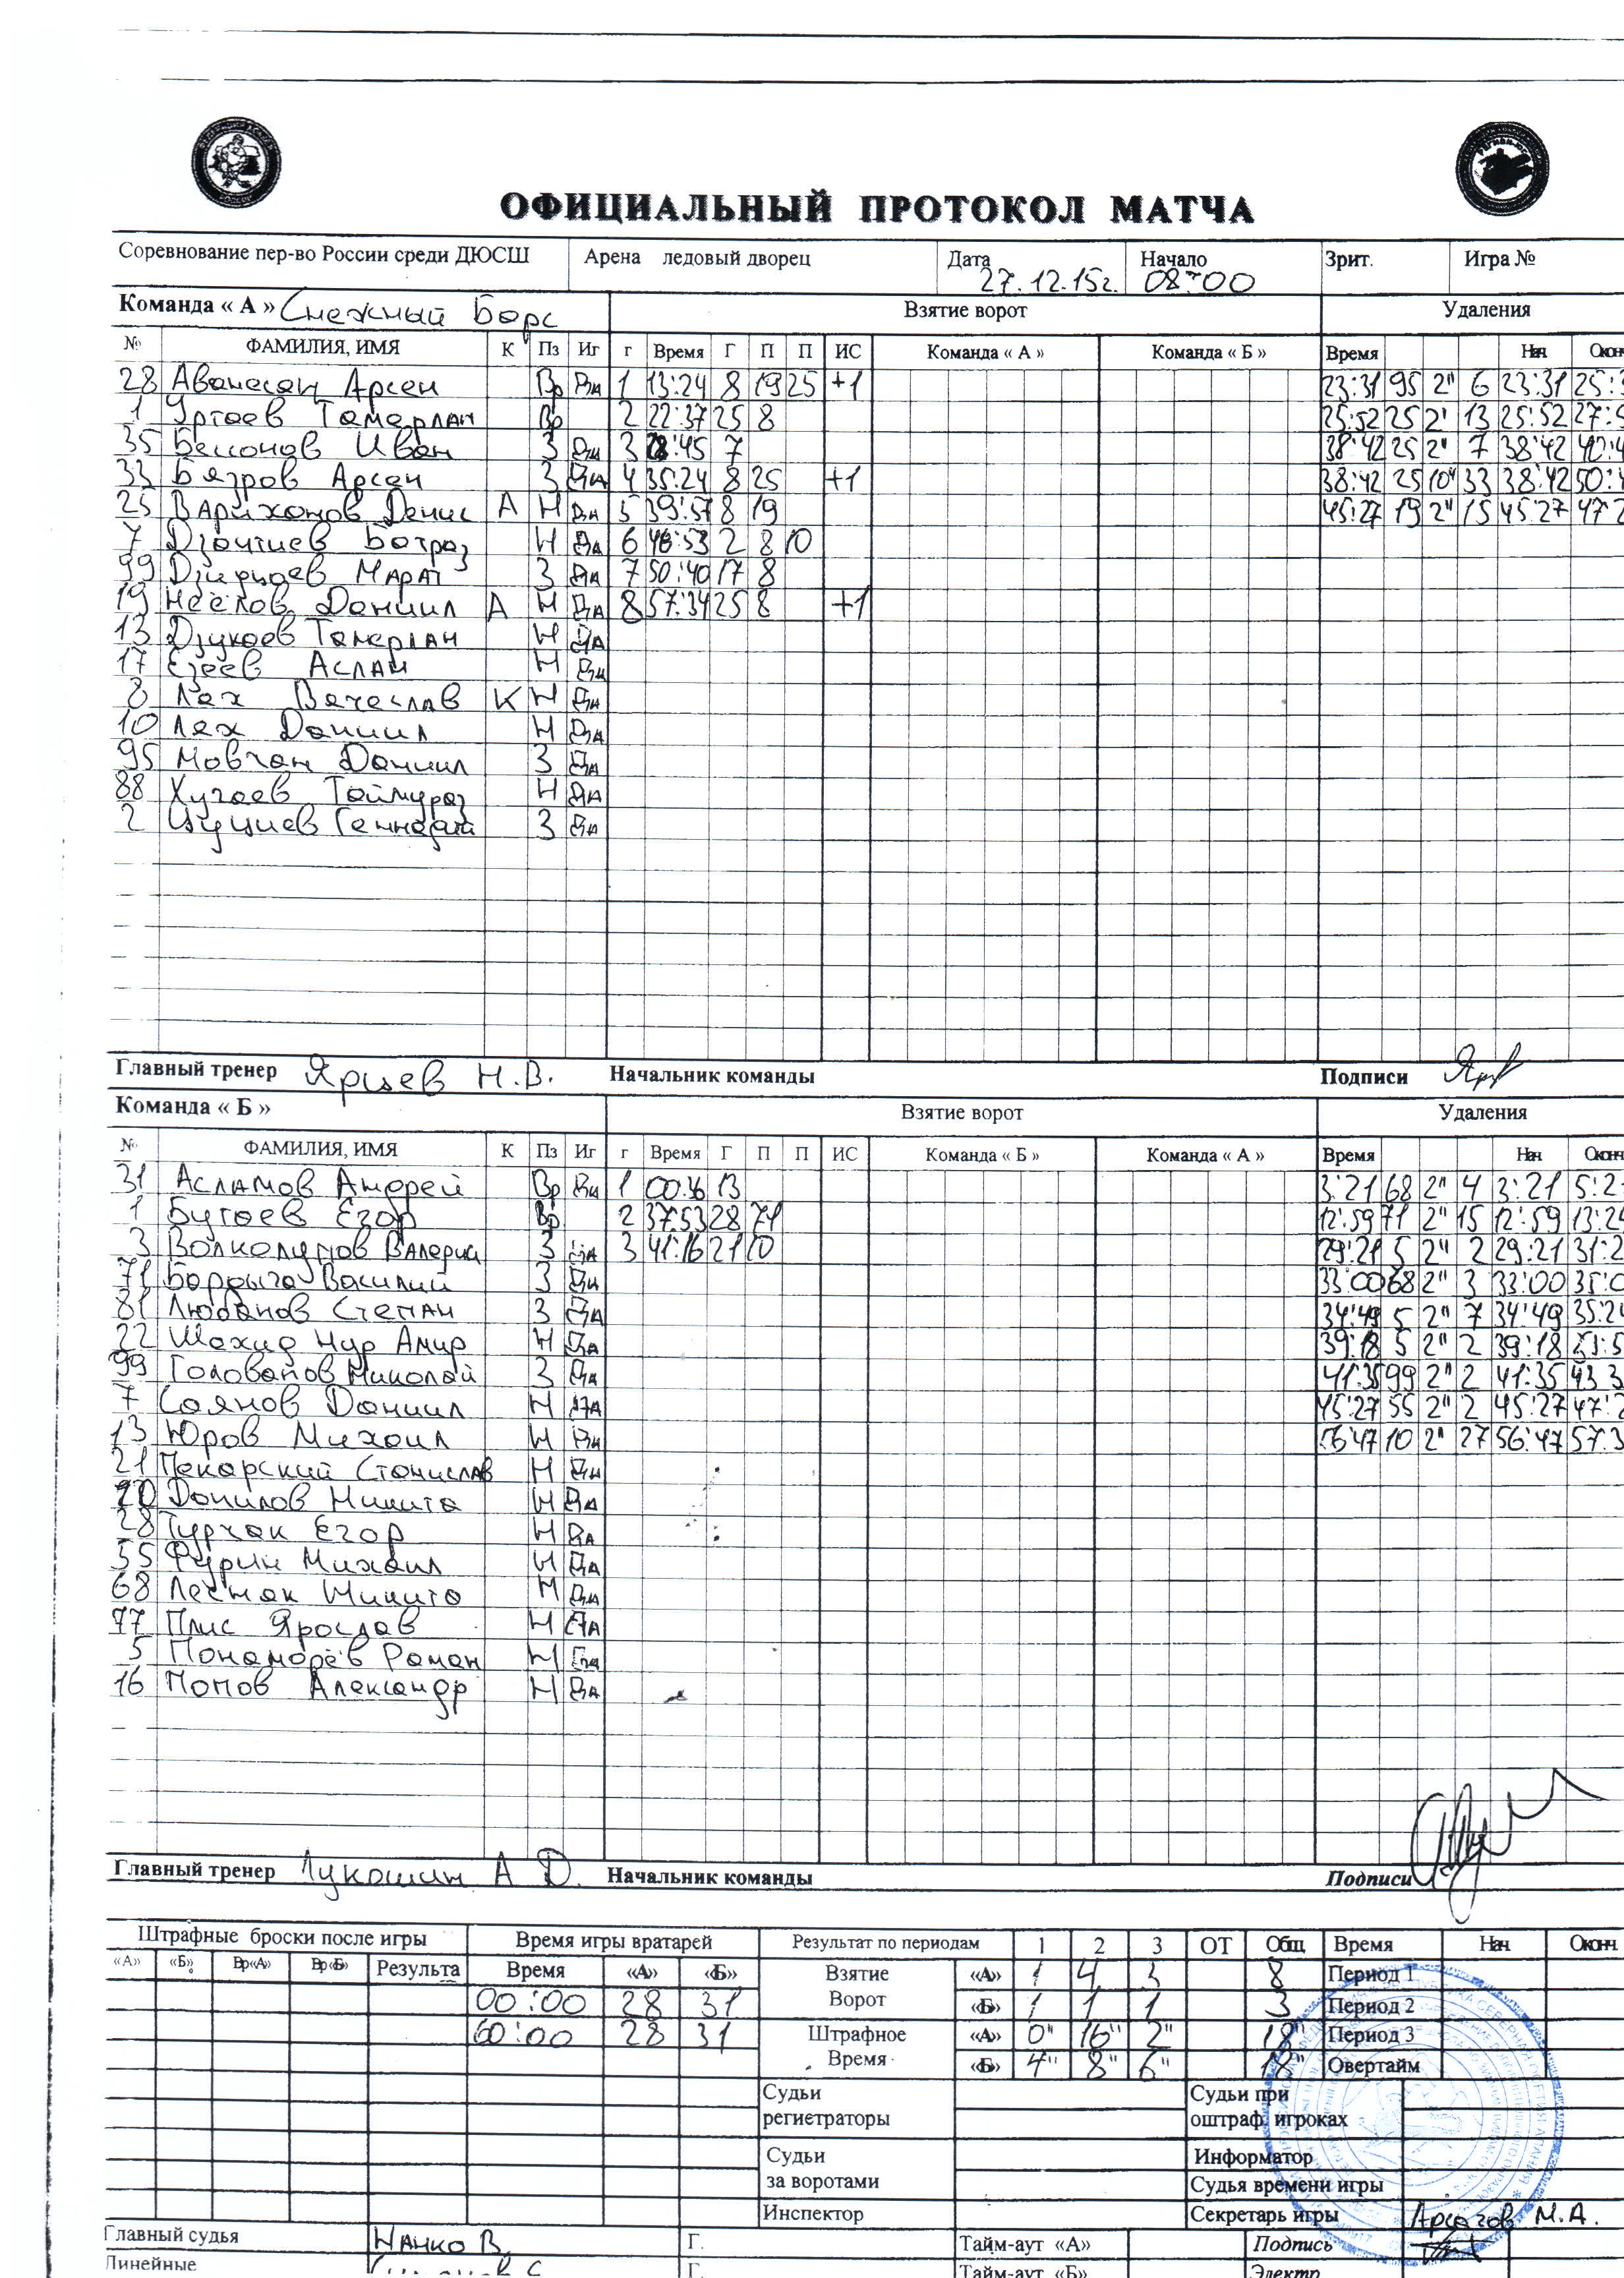 ОФИЦИАЛЬНЫЙ ПРОТОКОЛ МАТЧА
Соревнование пер-во России среди ДЮСШ Арена ледовый дворец Дата 27.12.15г. Начало 08:00 Зрит. Игра №
Команда « А » Снежный Барс Взятие ворот Удаления
№ ФАМИЛИЯ, ИМЯ К Пз Иг г Время Г П П ИС Команда « А » Команда « Б » Время Нач. Оконч
28 Аванесян Арсен Вр Да 1 13:24 8 19 25 +1 23:31 95 2" 6 23:31 25:3
1 Уртаев Тамерлан Вр 2 22:37 25 8 25:52 25 2' 13 25:52 27:5
35 Бессонов Иван З Да 3 28:45 7 38:42 25 2' 7 38:42 40:4
33 Бязров Арсен З Да 4 35:24 8 25 +1 38:42 25 10" 33 38:42 50:4
25 Варихонов Денис А Н Да 5 39:57 8 19 45:27 19 2" 15 45:27 47:2
7 Дзантиев Батраз Н Да 6 46:53 2 8 10
99 Марат З Да 7 50:40 17 8
19 Неелов Даниил А Н Да 8 57:34 25 8 +1
13 Дзукаев Тамерлан Н Да
17 Езеев Аслан Н Да
8 Лях Вячеслав К Н Да
10 Лях Даниил Н Да
95 Мовчан Даниил З Да
88 Хугаев Таймураз Н Да
2 Цуциев Геннадий З Да
Главный тренер Ярцев Н.В. Начальник команды Подписи
Команда « Б » Взятие ворот Удаления
№ ФАМИЛИЯ, ИМЯ К Пз Иг г Время Г П П ИС Команда « Б » Команда « А » Время Нач. Оконч
31 Асламов Андрей Вр Да 1 00:36 13 3:21 68 2" 4 3:21 5:2
1 Бутаев Егор Вр 2 37:53 28 71 12:59 71 2" 15 12:59 13:24
3 Волколупов Валерий З Да 3 41:16 21 10 29:21 5 2" 2 29:21 31:2
71 Бардыга Василий З Да 33:00 68 2" 3 33:00 35:0
81 Любанов Степан З Да 34:49 5 2" 7 34:49 35:24
22 Шахид Нур Амир Н Да 39:18 5 2" 2 39:18
99 Голованов Николай З Да 41:35 99 2" 2 41:35 43:3
7 Саянов Даниил Н Да 45:27 55 2" 2 45:27 47:2
13 Юров Михаил Н Да 56:47 10 2" 27 56:47 57:3
21 Пекарский Станислав Н Да
Данилов Никита Н Да
28 Турчак Егор Н Да
55 Фурин Михаил Н Да
68 Лесняк Никита Н Да
77 Плис Ярослав Н Да
5 Пономорёв Роман Н Да
16 Попов Александр Н Да
Главный тренер Лукошин А Д. Начальник команды Подписи
Штрафные броски после игры Время игры вратарей Результат по периодам 1 2 3 ОТ Общ. Время Нач Оконч
«А» «Б» Вр«А» Вр«Б» Результа Время «А» «Б» Взятие Ворот «А» 1 4 3 8 Период 1
00:00 28 31 «Б» 1 1 1 3 Период 2
60:00 28 31 Штрафное Время «А» 0" 16" 2" 18" Период 3
«Б» 4" 8" 6" 18" Овертайм
Судьи регистраторы Судьи при оштраф. игроках
Судьи за воротами Информатор
Судья времени игры
Инспектор Секретарь игры Арсагов М.А.
Главный судья Нанко В. Г. Тайм-аут «А» Подпись
Линейные Г. Тайм-аут «Б» Электр